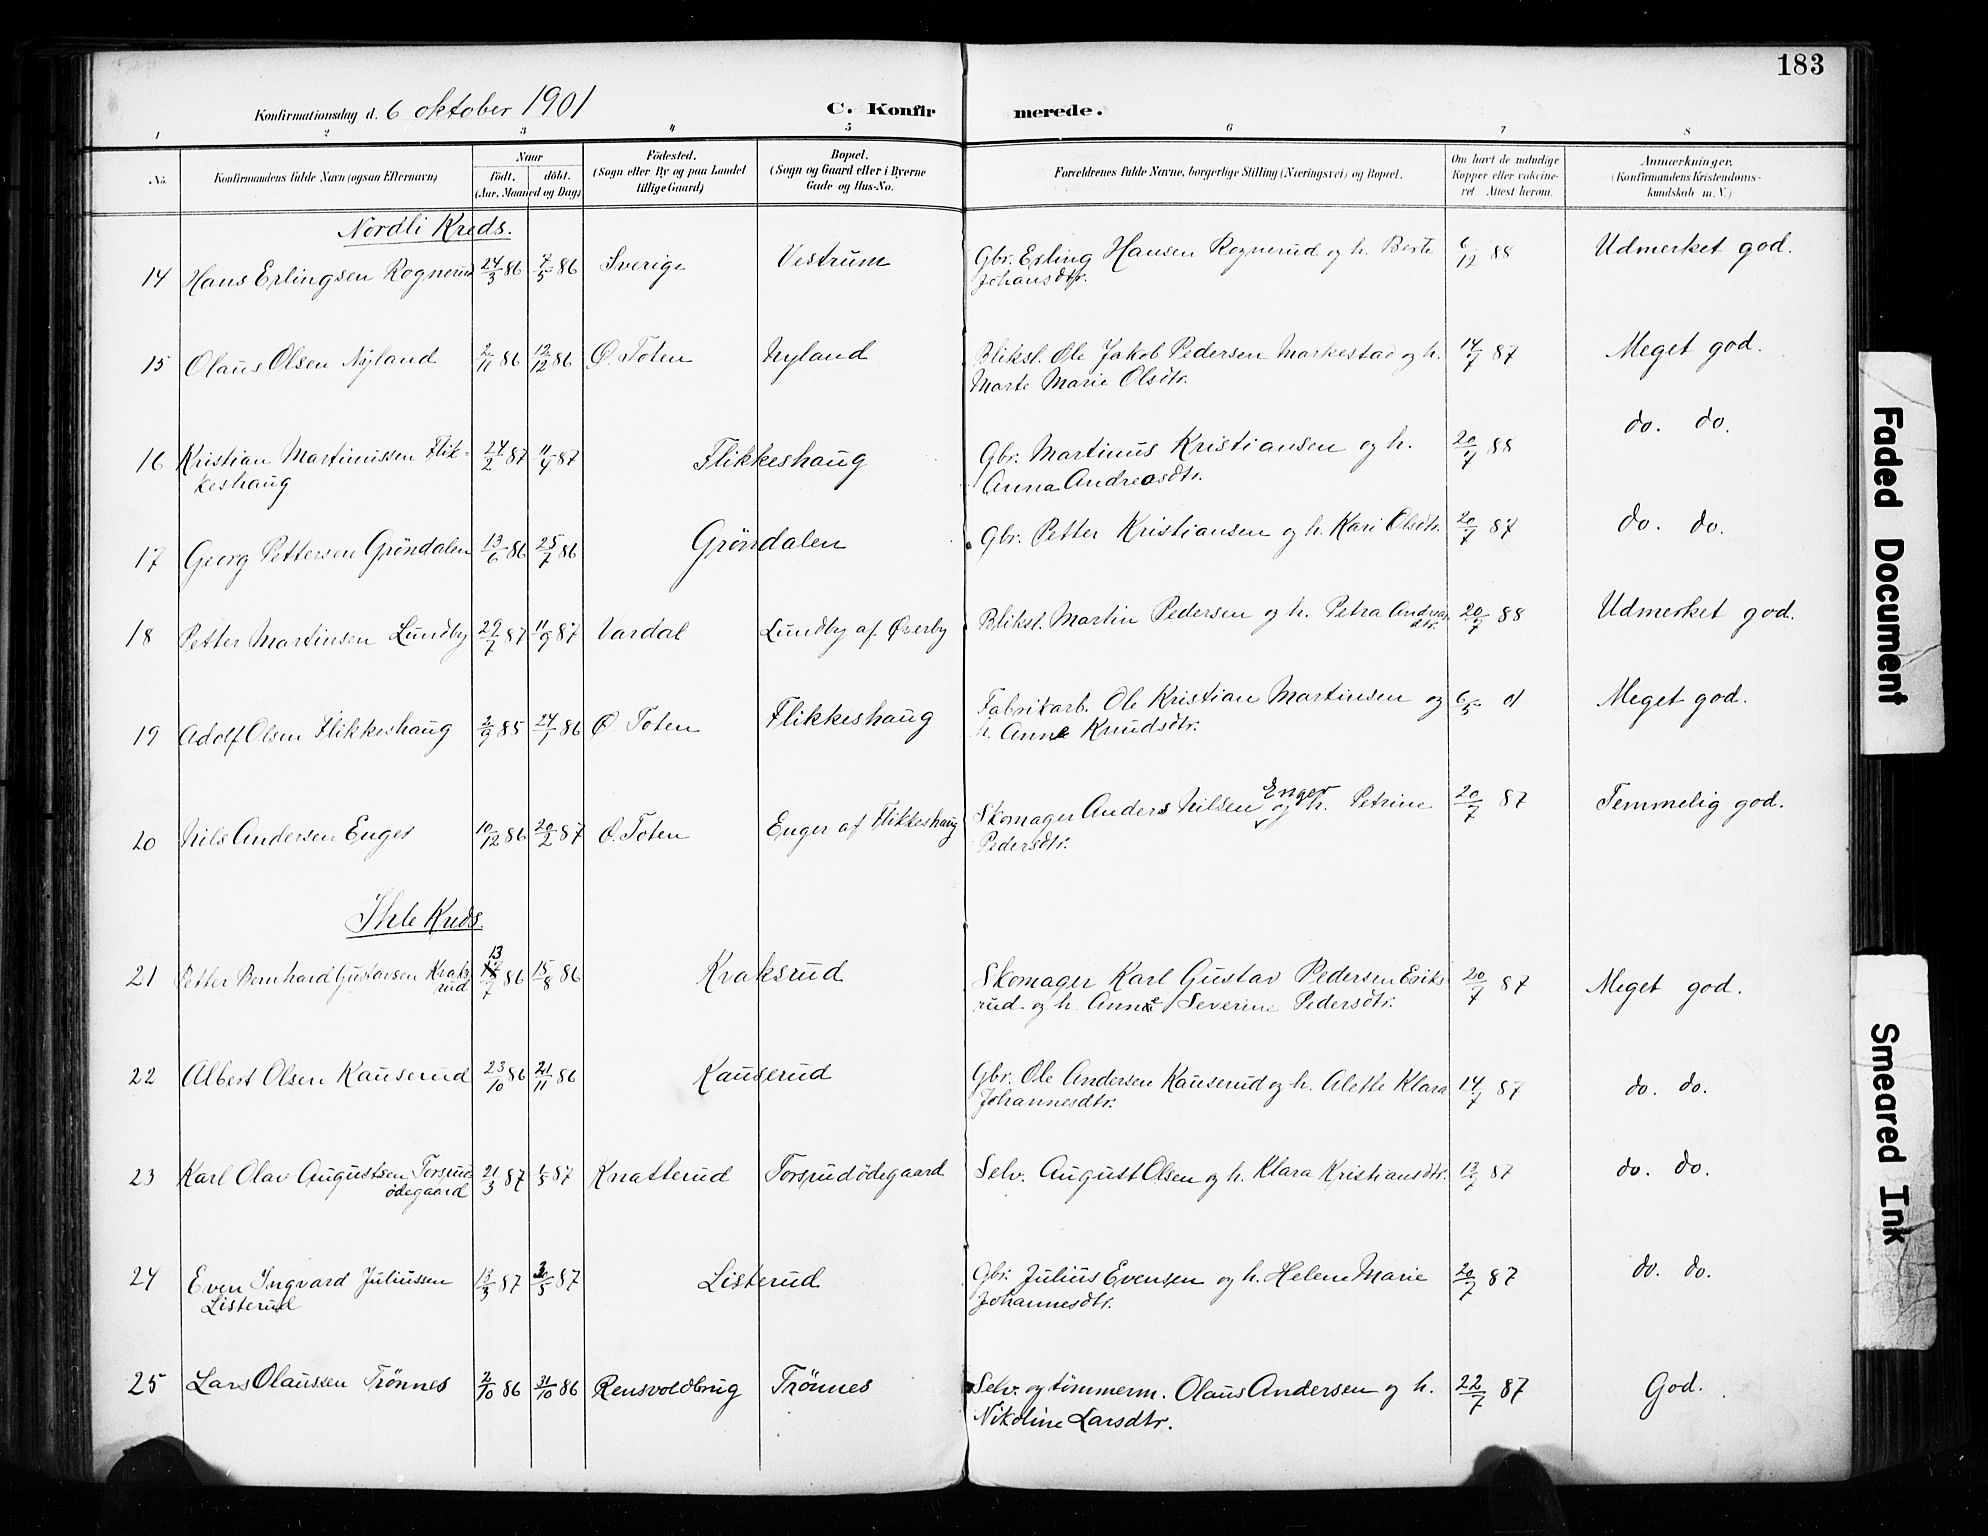 183
Konfirmationsdag d. 6 oktober 1901 C. Konfirmerede.
1 2 3 4 5 6 7 8
No. Konfirmandens fulde Navn (ogsaa Efternavn) Naar födt. döbt. (Aar, Maaned og Dag) Födested. (Sogn eller By og paa Landet tillige Gaard) Bopæl. (Sogn og Gaard eller i Byerne Gade og Hus-No. Forældrenes fulde Navne, borgerlige Stilling (Næringsvei) og Bopæl. Om havt de naturlige Kopper eller vaccineret. Attest herom. Anmærkninger. (Konfirmandens Kristendomskundskab m. V.)
Nordli Kreds.
14 Hans Erlingsen Rognerud 24/3 86 7/5 86 Sverige Vestrum Gbr. Erling Hansen Rognerud og h. Berte 6/12 88 Udmerket god.
Johansdtr.
15 Olaus Olsen Nyland 2/11 86 12/12 86 Ø. Toten Nyland Bliksl. Ole Jakob Pedersen Markestad og h. 14/7 87 Meget god.
Marte Marie Olsdtr.
16 Kristian Martinussen Flik- 24/2 87 11/4 87 Flikkeshaug Gbr. Martinus Kristiansen og h. 20/7 88 do. do.
keshaug Anna Andreasdtr.
17 Georg Pettersen Gröndalen 13/6 86 25/7 86 Gröndalen Gbr. Petter Kristiansen og h. Kari Olsdtr. 20/7 87 do. do.
18 Petter Martinsen Lundby 29/7 87 11/9 87 Vardal Lundby af Øverby Bliksl. Martin Pedersen og h. Petra Andreas 20/7 88 Udmerket god.
dtr.
19 Adolf Olsen Flikkeshaug 2/9 85 24/1 86 Ø. Toten Flikkeshaug Fabrikarb. Ole Kristian Martinsen og 6/5 01 Meget god.
h. Anne Knudsdtr.
20 Nils Andersen Enger 10/12 86 20/2 87 Ø. Toten Enger af Flikkeshaug Skomager Anders Nilsen Enger og h. Petrine 20/7 87 Temmelig god.
Pedersdtr.
Ihle Kreds.
21 Petter Bernhard Gustavsen Kraks- 13/7 86 15/8 86 Kraksrud Skomager Karl Gustav Pedersen Eriks- 20/7 87 Meget god.
rud rud og h. Anne Severine Pedersdtr.
22 Albert Olsen Kauserud 23/10 86 21/11 86 Kauserud Gbr. Ole Andersen Kauserud og h. Alette Klara 14/7 87 do. do.
Johannesdtr.
23 Karl Olav Augustsen Torsrud 21/3 87 1/5 87 Knatterud Torsrudødegaard Selv. August Olsen og h. Klara Kristiansdtr. 13/7 87 do. do.
ødegaard
24 Even Ingvard Juliussen 13/3 87 30/5 87 Listerud Gbr. Julius Evensen og h. Helene Marie 20/7 87 do. do.
Listerud Johannesdtr.
25 Lars Olaussen Trönnes 2/10 86 31/10 86 Rensvoldbrug Trönnes Selv. og tömmerm. Olaus Andersen og h. 22/7 87 God.
Nikoline Larsdtr.
Faded Document
Smeared Ink